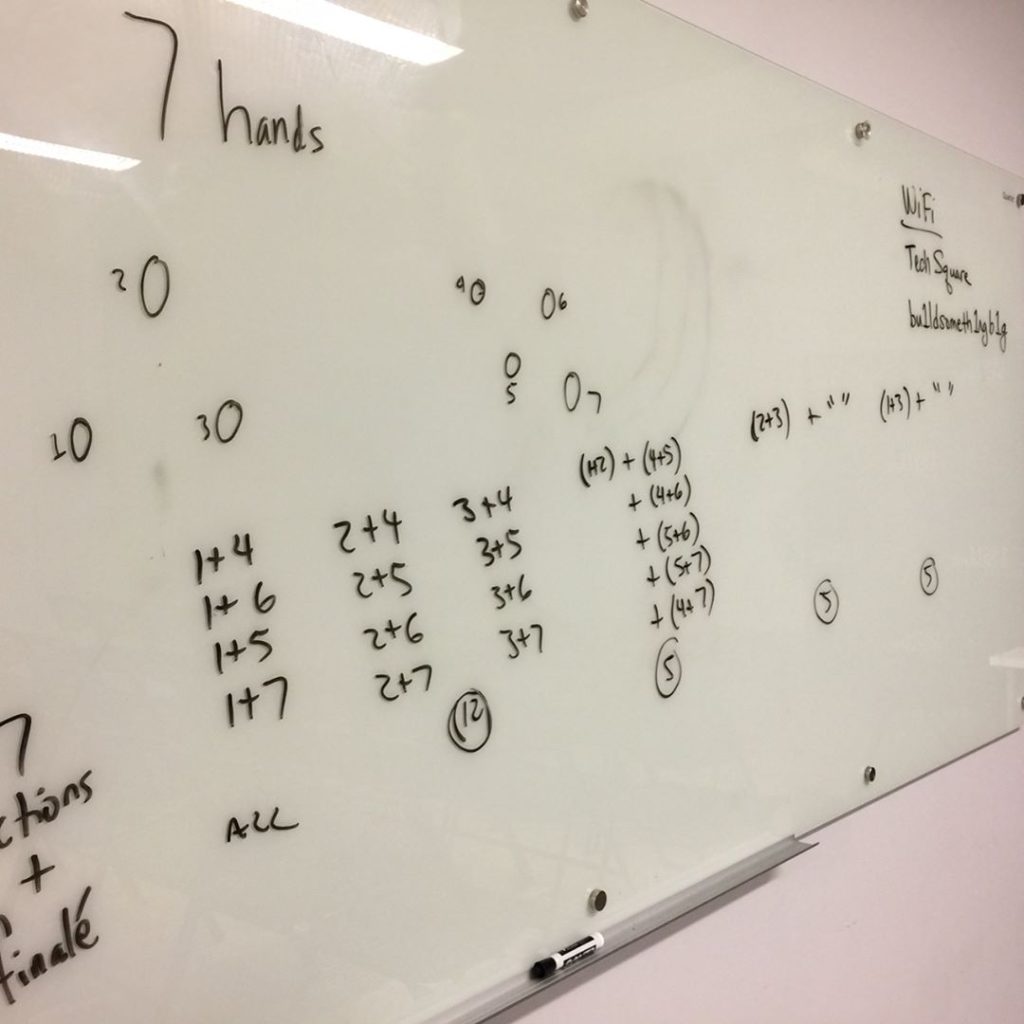 7 hands
WiFi
Tech Square
bu1ldsometh1ngb1g
2 O
4 O
O 6
O
5
O 7
1 O
3 O
(2+3) + " "
(1+3) + " "
(1+2) + (4+5)
+ (4+6)
+ (5+6)
+ (5+7)
+ (4+7)
5
5
5
1+4 2+4 3+4
1+6 2+5 3+5
1+5 2+6 3+6
1+7 2+7 3+7
12
7
ctions
+
finalé
ALL